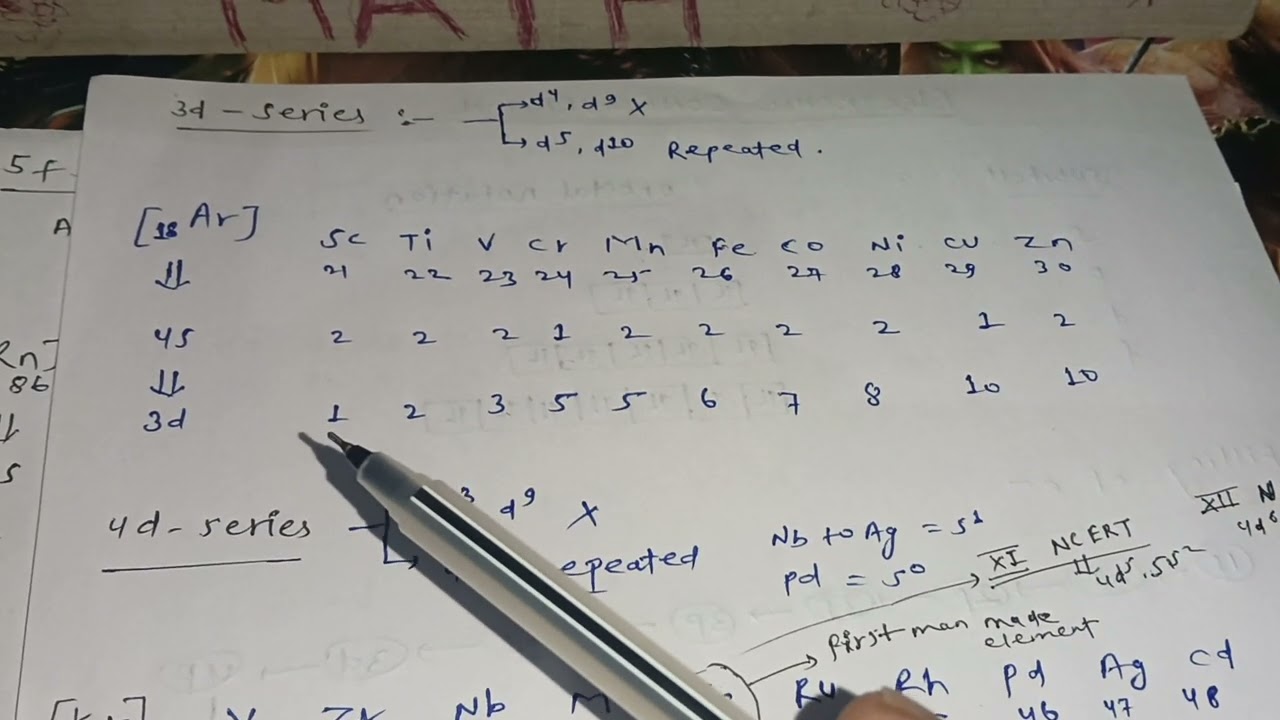 MATH
3d - series :- → d⁴, d⁹ X
→ d⁵, d¹⁰ Repeated.
5f
A
[₁₈Ar] Sc Ti V Cr Mn Fe Co Ni Cu Zn
⇓ 21 22 23 24 25 26 27 28 29 30
4s 2 2 2 1 2 2 2 2 1 2
Rn]
86
⇓
3d 1 2 3 5 5 6 7 8 10 10
s
4d - series 3 d⁹ X
epeated
Nb to Ag = s¹
Pd = s⁰
XI NCERT
4d⁵.5s²
XII N
first man made
element
Nb M Ru Rh Pd Ag Cd
46 47 48